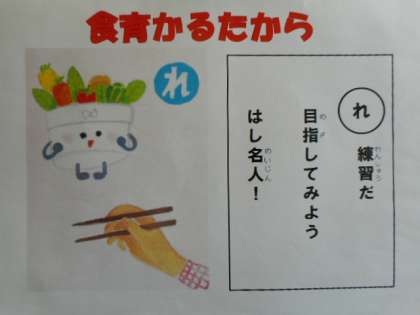 食育かるたから
れ
れ
練習だ
れんしゅう
目指してみよう
めざ
はし名人!
めいじん